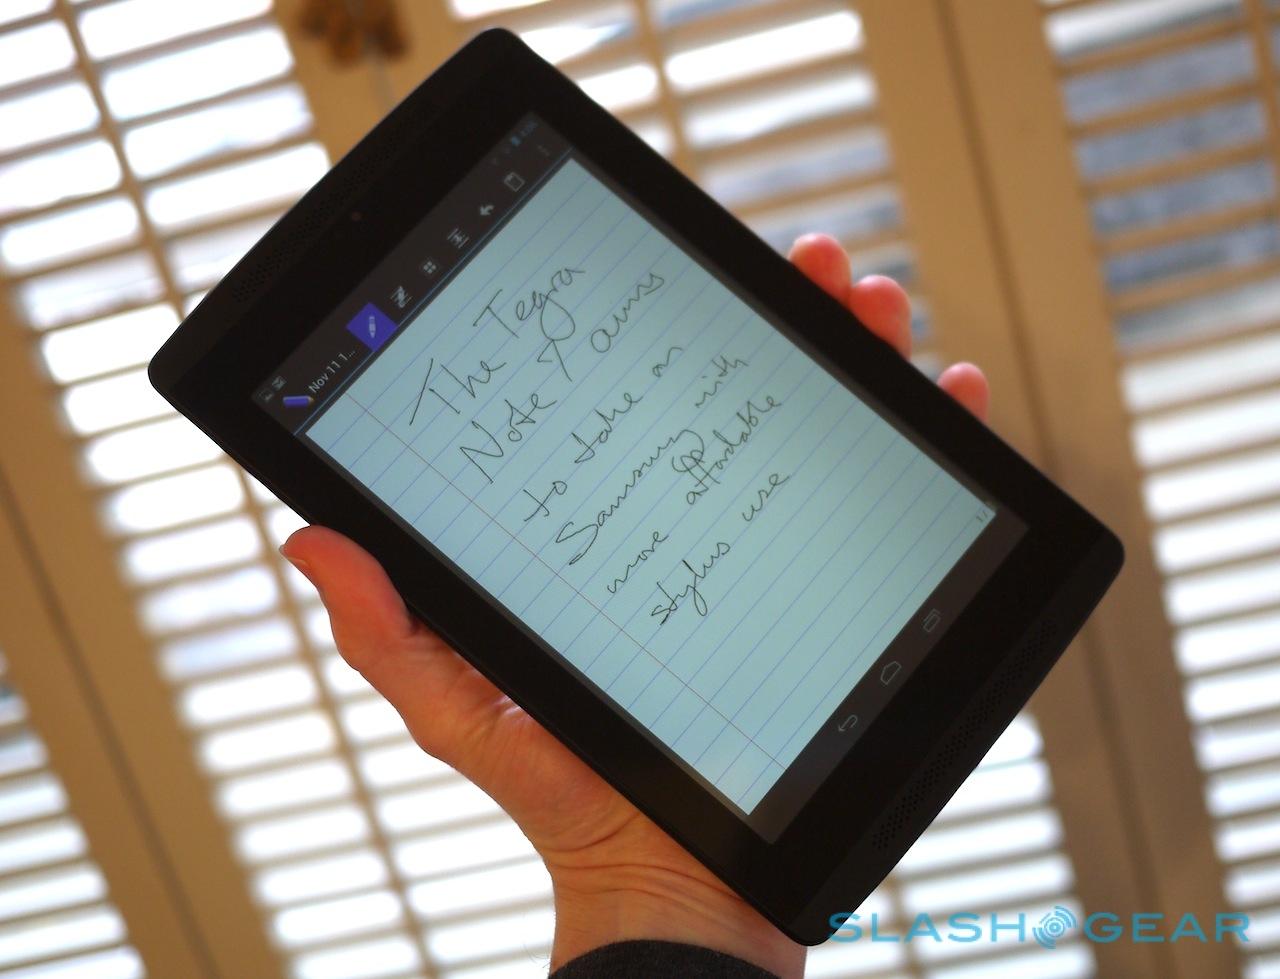 Nov 11 1...
The Tegra
Note 7 aims
to take on
Samsung with
more affordable
stylus use
1/1
SLASHGEAR